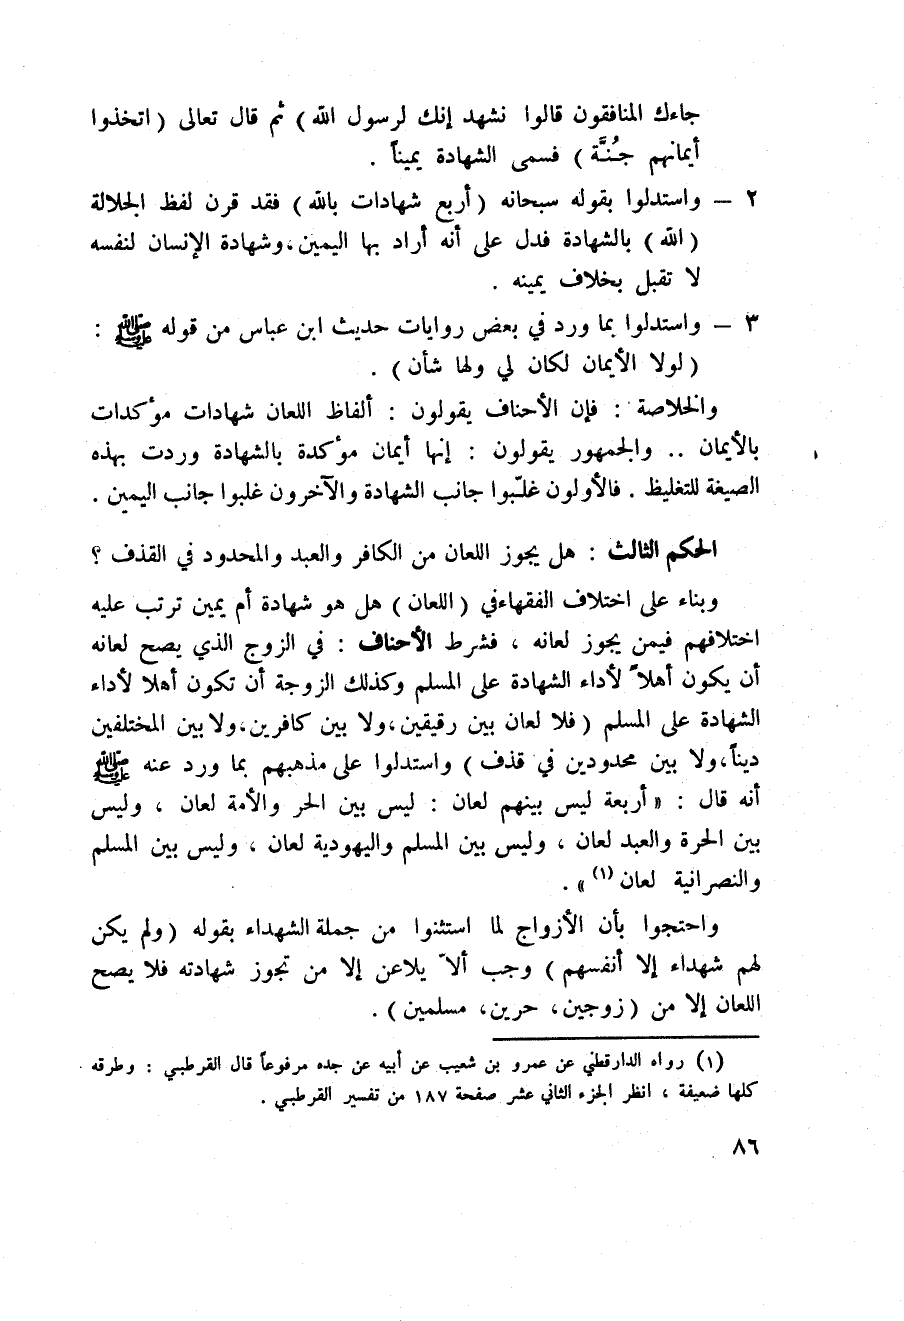 جاءك المنافقون قالوا نشهد إنك لرسول الله ) ثم قال تعالى ( اتخذوا
أيمانهم جُنَّة ) فسمى الشهادة يميناً .
٢ – واستدلوا بقوله سبحانه ( أربع شهادات بالله ) فقد قرن لفظ الجلالة
( الله ) بالشهادة فدل على أنه أراد بها اليمين ، وشهادة الإنسان لنفسه
لا تقبل بخلاف يمينه .
٣ – واستدلوا بما ورد في بعض روايات حديث ابن عباس من قوله ﷺ :
( لولا الأيمان لكان لي ولها شأن ) .
والخلاصة : فإن الأحناف يقولون : ألفاظ اللعان شهادات مؤكدات
بالأيمان .. والجمهور يقولون : إنها أيمان مؤكدة بالشهادة وردت بهذه
الصيغة للتغليظ . فالأولون غلّبوا جانب الشهادة والآخرون غلبوا جانب اليمين .
الحكم الثالث : هل يجوز اللعان من الكافر والعبد والمحدود في القذف ؟
وبناء على اختلاف الفقهاء في ( اللعان ) هل هو شهادة أم يمين ترتب عليه
اختلافهم فيمن يجوز لعانه ، فشرط الأحناف : في الزوج الذي يصح لعانه
أن يكون أهلاً لأداء الشهادة على المسلم وكذلك الزوجة أن تكون أهلا لأداء
الشهادة على المسلم ( فلا لعان بين رقيقين ، ولا بين كافرين ، ولا بين المختلفين
ديناً ، ولا بين محدودين في قذف ) واستدلوا على مذهبهم بما ورد عنه ﷺ
أنه قال : « أربعة ليس بينهم لعان : ليس بين الحر والأمة لعان ، وليس
بين الحرة والعبد لعان ، وليس بين المسلم واليهودية لعان ، وليس بين المسلم
والنصرانية لعان (١) » .
واحتجوا بأن الأزواج لما استثنوا من جملة الشهداء بقوله ( ولم يكن
لهم شهداء إلا أنفسهم ) وجب ألاّ يلاعن إلا من تجوز شهادته فلا يصح
اللعان إلا من ( زوجين ، حرين ، مسلمين ) .
(١) رواه الدارقطني عن عمرو بن شعيب عن أبيه عن جده مرفوعاً قال القرطبي : وطرقه
كلها ضعيفة ، انظر الجزء الثاني عشر صفحة ١٨٧ من تفسير القرطبي .
٨٦